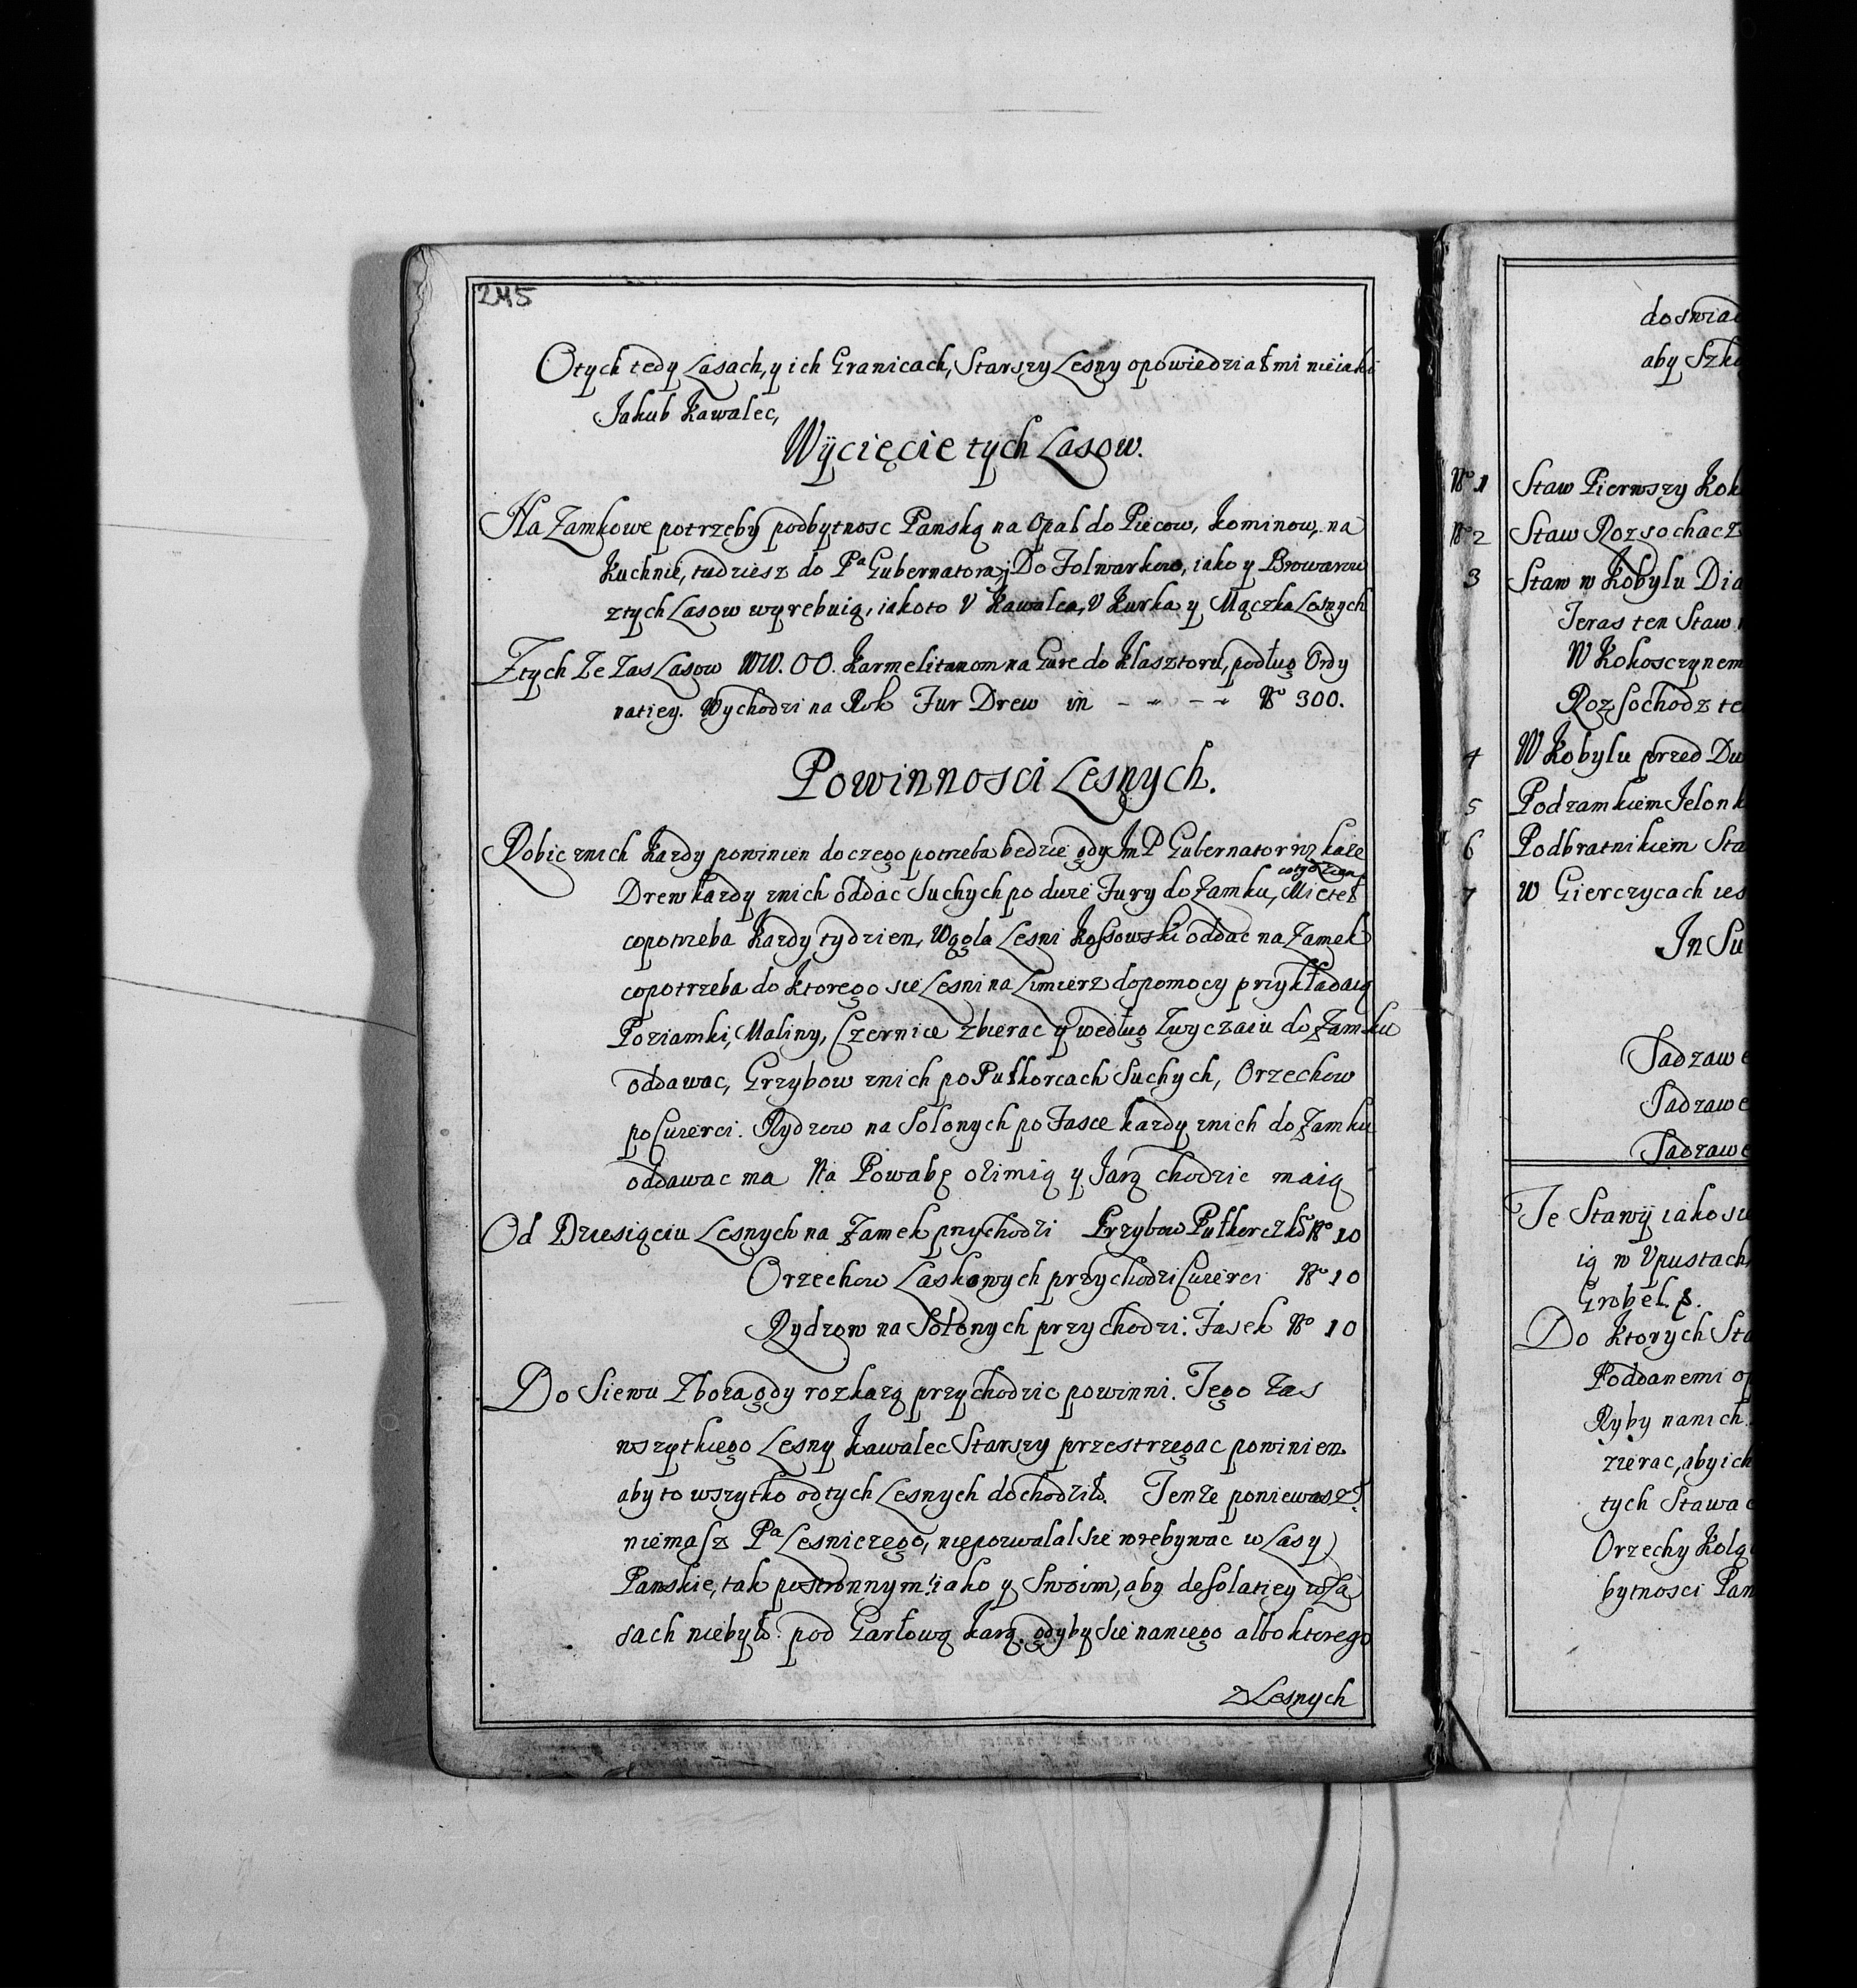 245
O tych tedy Lasach, y ich Granicach, Starszy Lesny opowiedział mi nieiaki
Jakub Kawalec,
Wÿcięcie tych Lasow.
Na Zamkowe potrzeby pod bytnosc Panską na Opał do Piecow, Kominow, na
Kuchnie, tudziesz do Pª Gubernatora, Do Folwarkow, iako y Browarow
z tych Lasow wyrebuią, iako to V Kawalca, V Kurka y Mączka Lesnych
Z tych Ze Zas Lasow WW. OO. Karmelitanom na Gure do Klasztoru, podług Ordy
natiey. Wychodzi na Rok Fur Drew in - - - - Nº 300.
Powinnosci Lesnych.
Robic znich Kazdy powinien do czego potrzeba bedzie gdy Im P Gubernator rozkaze
co tydzien
Drew kazdy znich oddac Suchych po duze Fury do Zamku, Mieteł
co potrzeba Kazdy tydzien, Wągla Lesni Kossowski oddac na Zamek
co potrzeba do Ktorego sie Lesni na Limierz do pomocy przykładaią
Poziamki, Maliny, Czernice zbierac y według Zwyczaiu do Zamku
oddawac, Grzybow znich po Pułkorcach Suchych, Orzechow
po Cwierci. Rydzow na Solonych po Fasce kazdy znich do Zamku
oddawac ma Na Powabę o Zimią y Jarą chodzic maią
Od Dziesiąciu Lesnych na Zamek przychodzi Grzybow Pułkorczkow Nº 10
Orzechow Laskowych przychodzi Cwierci Nº 10
Rydzow na Sołonych przychodzi. Fasek Nº 10
Do Siewu Zboza gdy rozkazą przychodzic powinni. Tego Zas
wszytkiego Lesny Kawalec Starszy przestrzegac powinien
aby to wszytko od tych Lesnych dochodziło. Tenze poniewasz
niemasz Pª Lesniczego, niepozwalal sie wrebywac w Lasy
Panskie, tak postronnym iako y Swoim, aby desolatiey w La
sach niebyło pod Garłową karą, gdyby sie naniego albo ktorego
z Lesnych
doswiad
aby Szko
Nº 1 Staw Pierwszy Kok
Nº 2 Staw Rozsochacz
3 Staw w Kobylu Dia
Teras ten Staw
W Kokosczynem
Rozsochodz te
4 W Kobylu przed Du
5 Podzamkiem Jelonk
6 Podbratnikiem Sta
7 w Gierczycach ies
In Su
Sadzaw
Sadzawe
Sadzawe
Te Stawÿ iako sie
ią w Vpustach
Grobel.
Do Ktorych Sta
Poddanemi op
Ryby nanich
zierac, aby ich
tych Stawa
Orzechy Kolą
bytnosci Pan